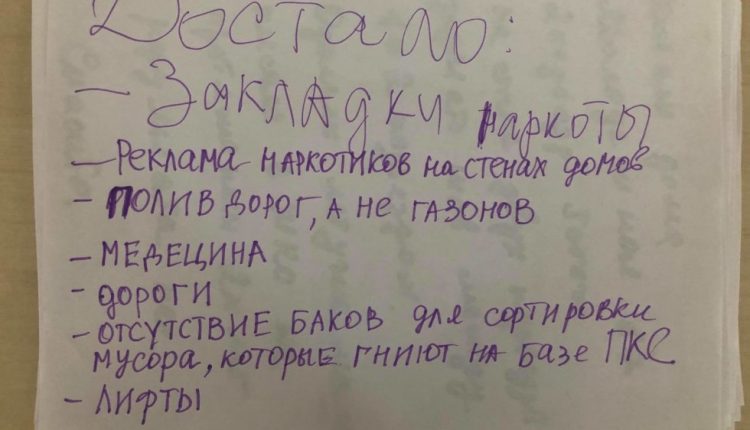 Достало:
- Закладки наркоты
- Реклама наркотиков на стенах домов
- Полив дорог, а не газонов
- МЕДЕЦИНА
- дороги
- Отсутствие баков для сортировки
мусора, которые гниют на базе ПКС
- Лифты